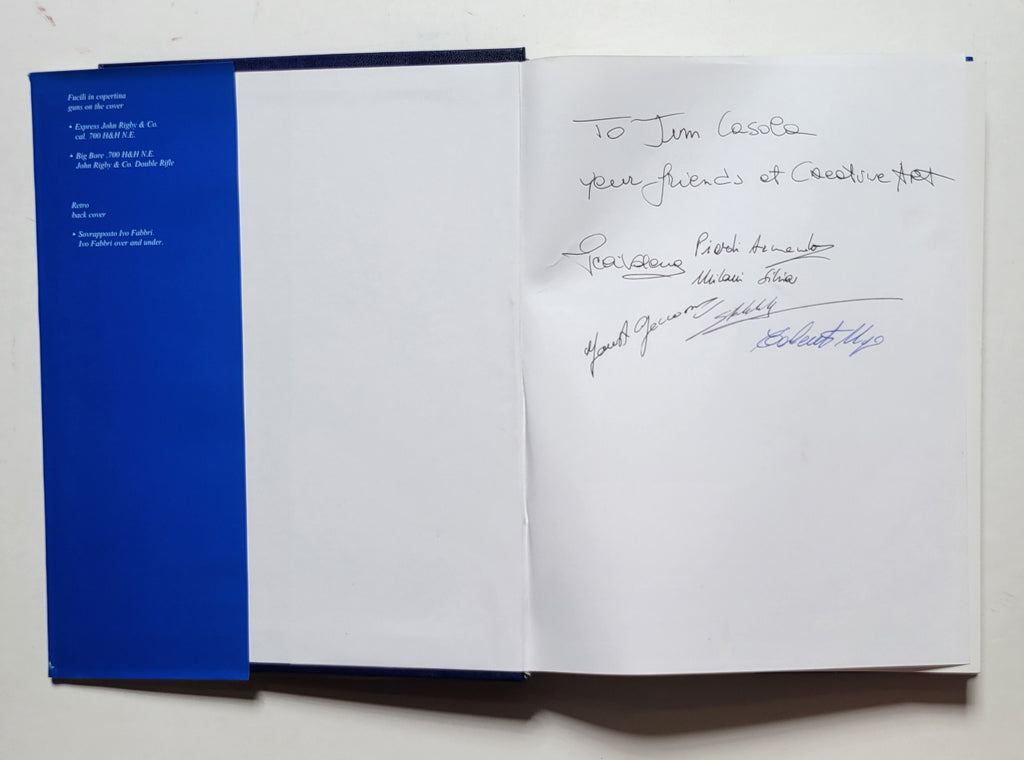 Fucili in copertina
guns on the cover
• Express John Rigby & Co.
cal. 700 H&H N.E.
• Big Bore .700 H&H N.E.
John Rigby & Co. Double Rifle
Retro
back cover
• Sovrapposto Ivo Fabbri.
Ivo Fabbri over and under.
To Jim Casola
your friends at Creative Art
Piardi Armando
Milani Silvia